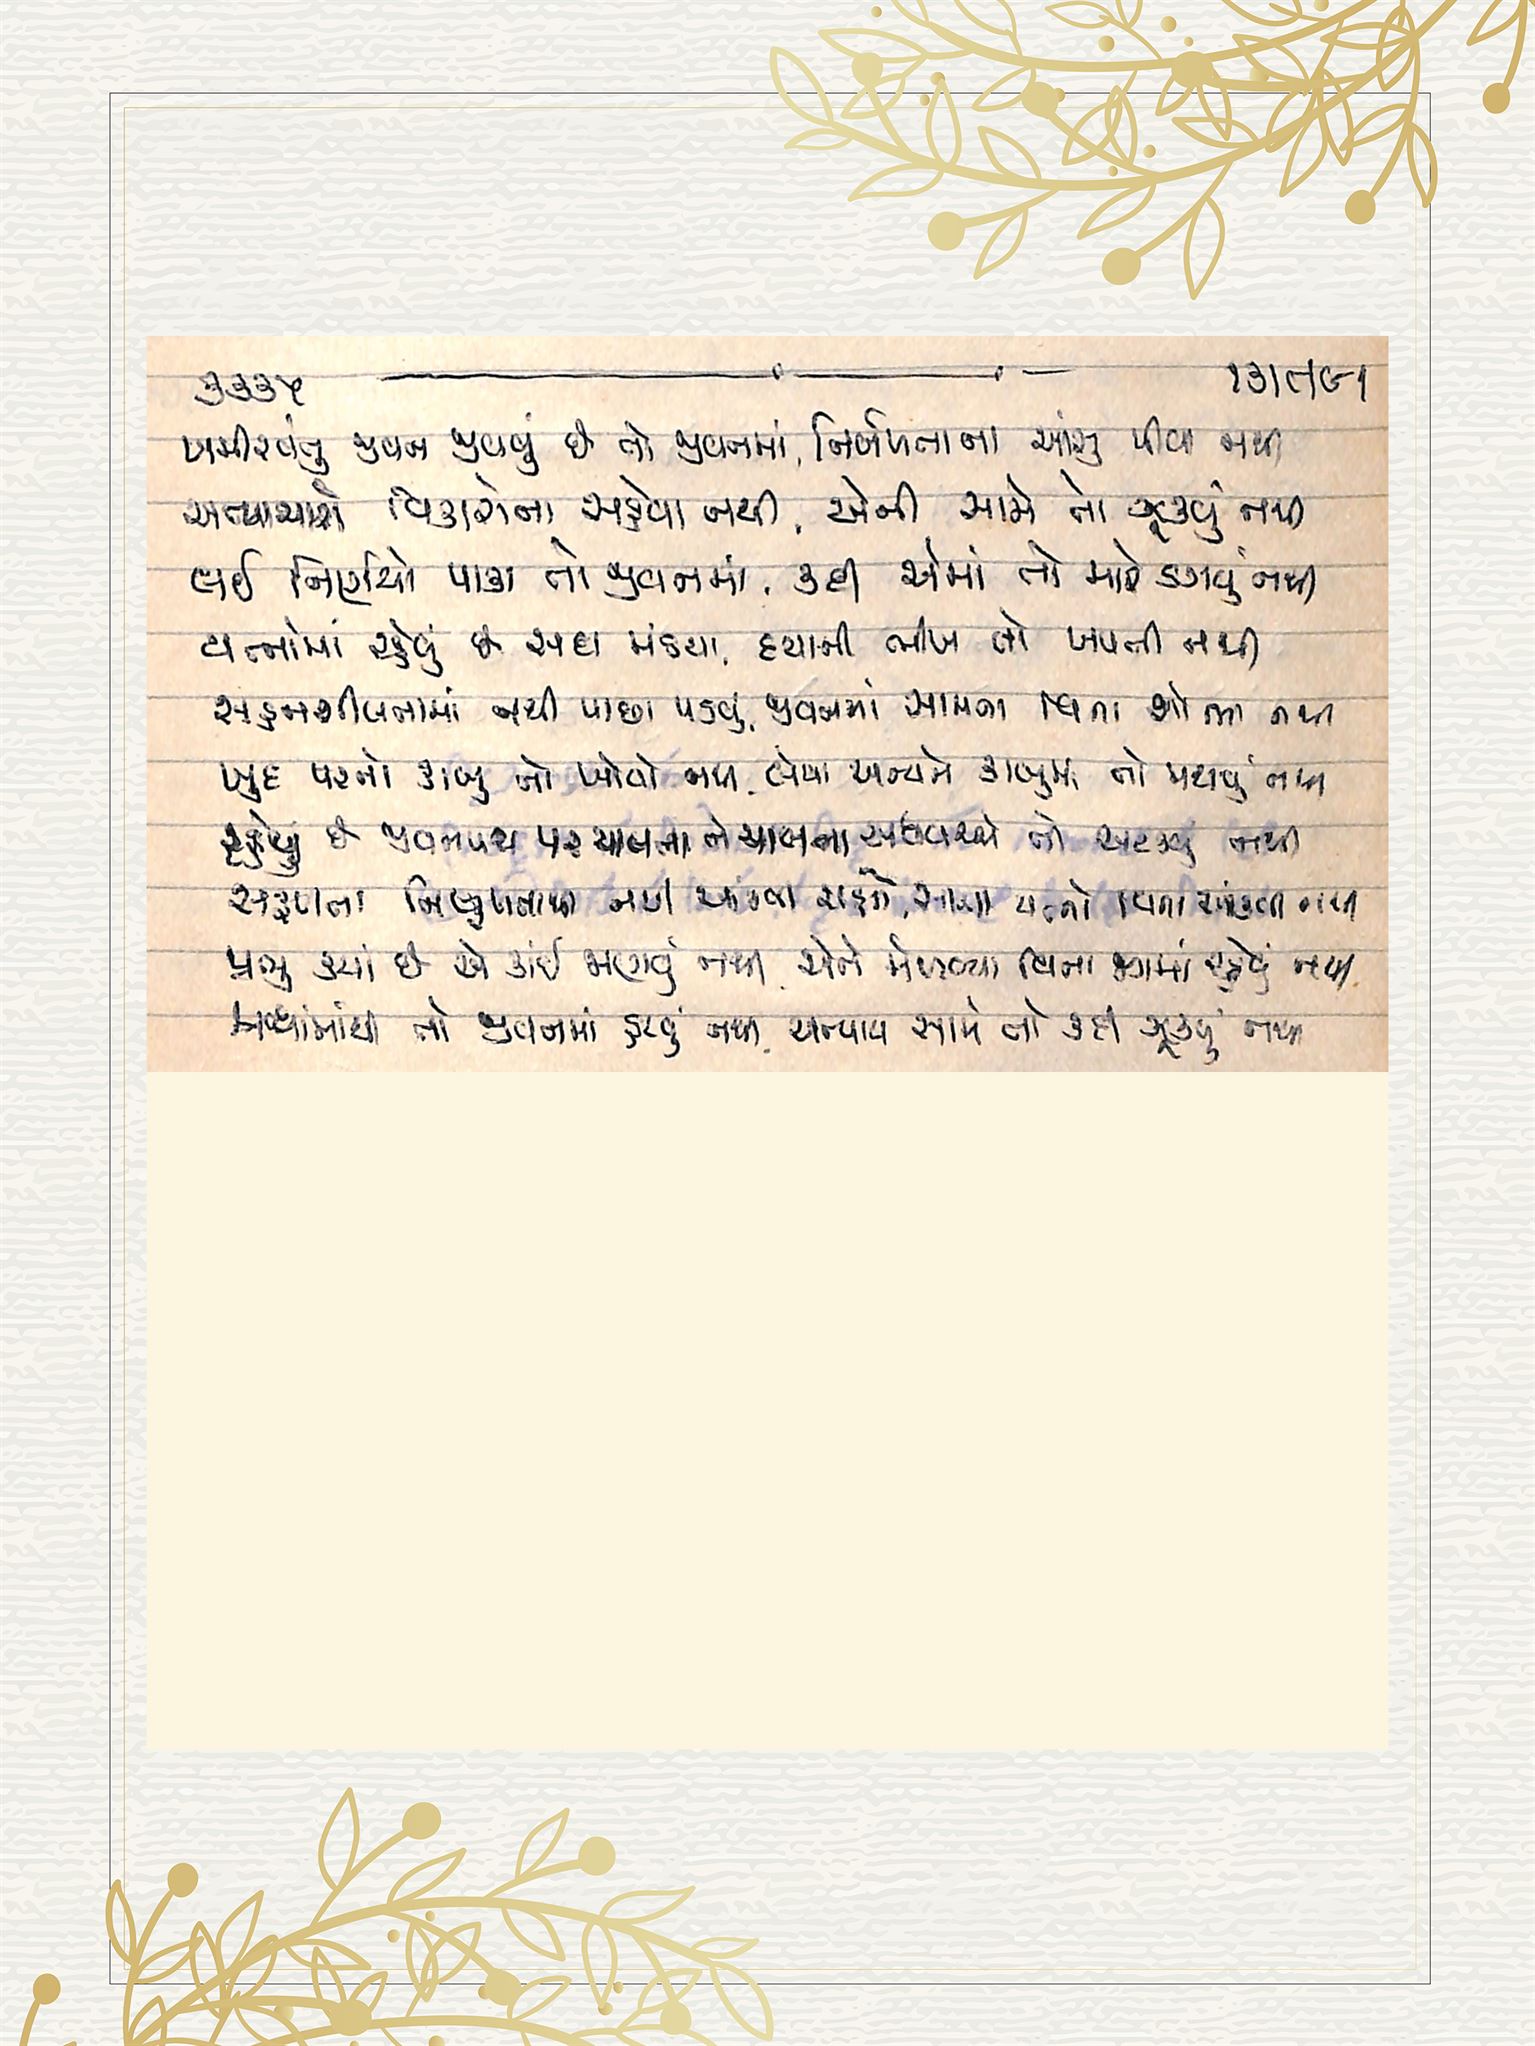 ૩૩૩૫ ૧૩/૮/૯૧
ખમીરવંતુ જીવન જીવવું છે તો જીવનમાં, નિર્બળતાના આંસુ પીવા નથી
અત્યાચારો વિકારોના સહેવા નથી, એની સામે તો ઝૂકવું નથી
લઈ નિર્ણયો પાકા તો જીવનમાં, કદી એમાં તો મારે ડગવું નથી
યત્નોમાં રહેવું છે સદા મંડયા, દયાની ભીખ તો ખપતી નથી
સહનશીલતામાં નથી પાછા પડવું, જીવનમાં સામના વિના શોભા નથી
ખુદ પરનો કાબુ તો ખોવો નથી, લેવા અન્યને કાબુમાં તો મથવું નથી
રહેવું છે જીવનપથ પર ચાલતા ને ચાલતા અધવચ્ચે તો અટકવું નથી
સફળતા નિષ્ફળતાથી નથી આંકવા રાહને, સાચા યત્નો વિના આંકવા નથી
પ્રભુ કયાં છે એ કાંઈ જાણવું નથી, એને મેળવ્યા વિના જગમાં રહેવું નથી
બધામાંથી તો જીવનમાં હટવું નથી, અન્યાય સામે તો કદી ઝૂકવું નથી